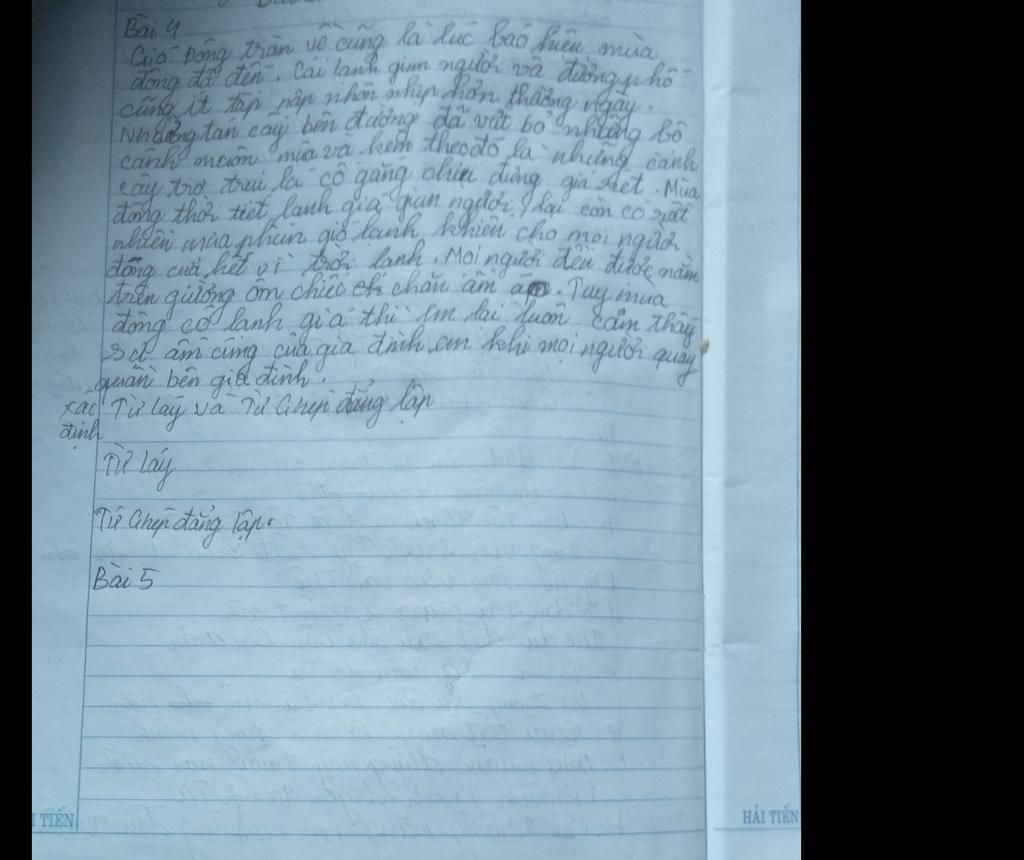 Bài 4
Gió Đông tràn về cũng là lúc báo hiệu mùa
đông đã đến. Cái lạnh giun người và đường phố
cũng ít tấp nập nhộn nhịp hơn thường ngày.
Những tán cây bên đường đã vứt bỏ những bộ
cánh muôn màu và kèm theo đó là những cành
cây trơ trụi lá cố gắng chịu đựng giá rét. Mùa
đông thời tiết lạnh giá giun người, lại còn có rất
nhiều mưa phùn gió lạnh khiến cho mọi người
đóng cửa hết vì trời lạnh. Mọi người đều được nằm
trên giường ôm chiếc chăn ấm áp. Tuy mùa
đông có lạnh giá thì em lại luôn cảm thấy
sự ấm cúng của gia đình em khi mọi người quay
quần bên gia đình.
xác định
Từ láy và Từ Ghép đẳng lập
Từ láy
Từ Ghép đẳng lập.
Bài 5
I TIẾN
HẢI TIẾN